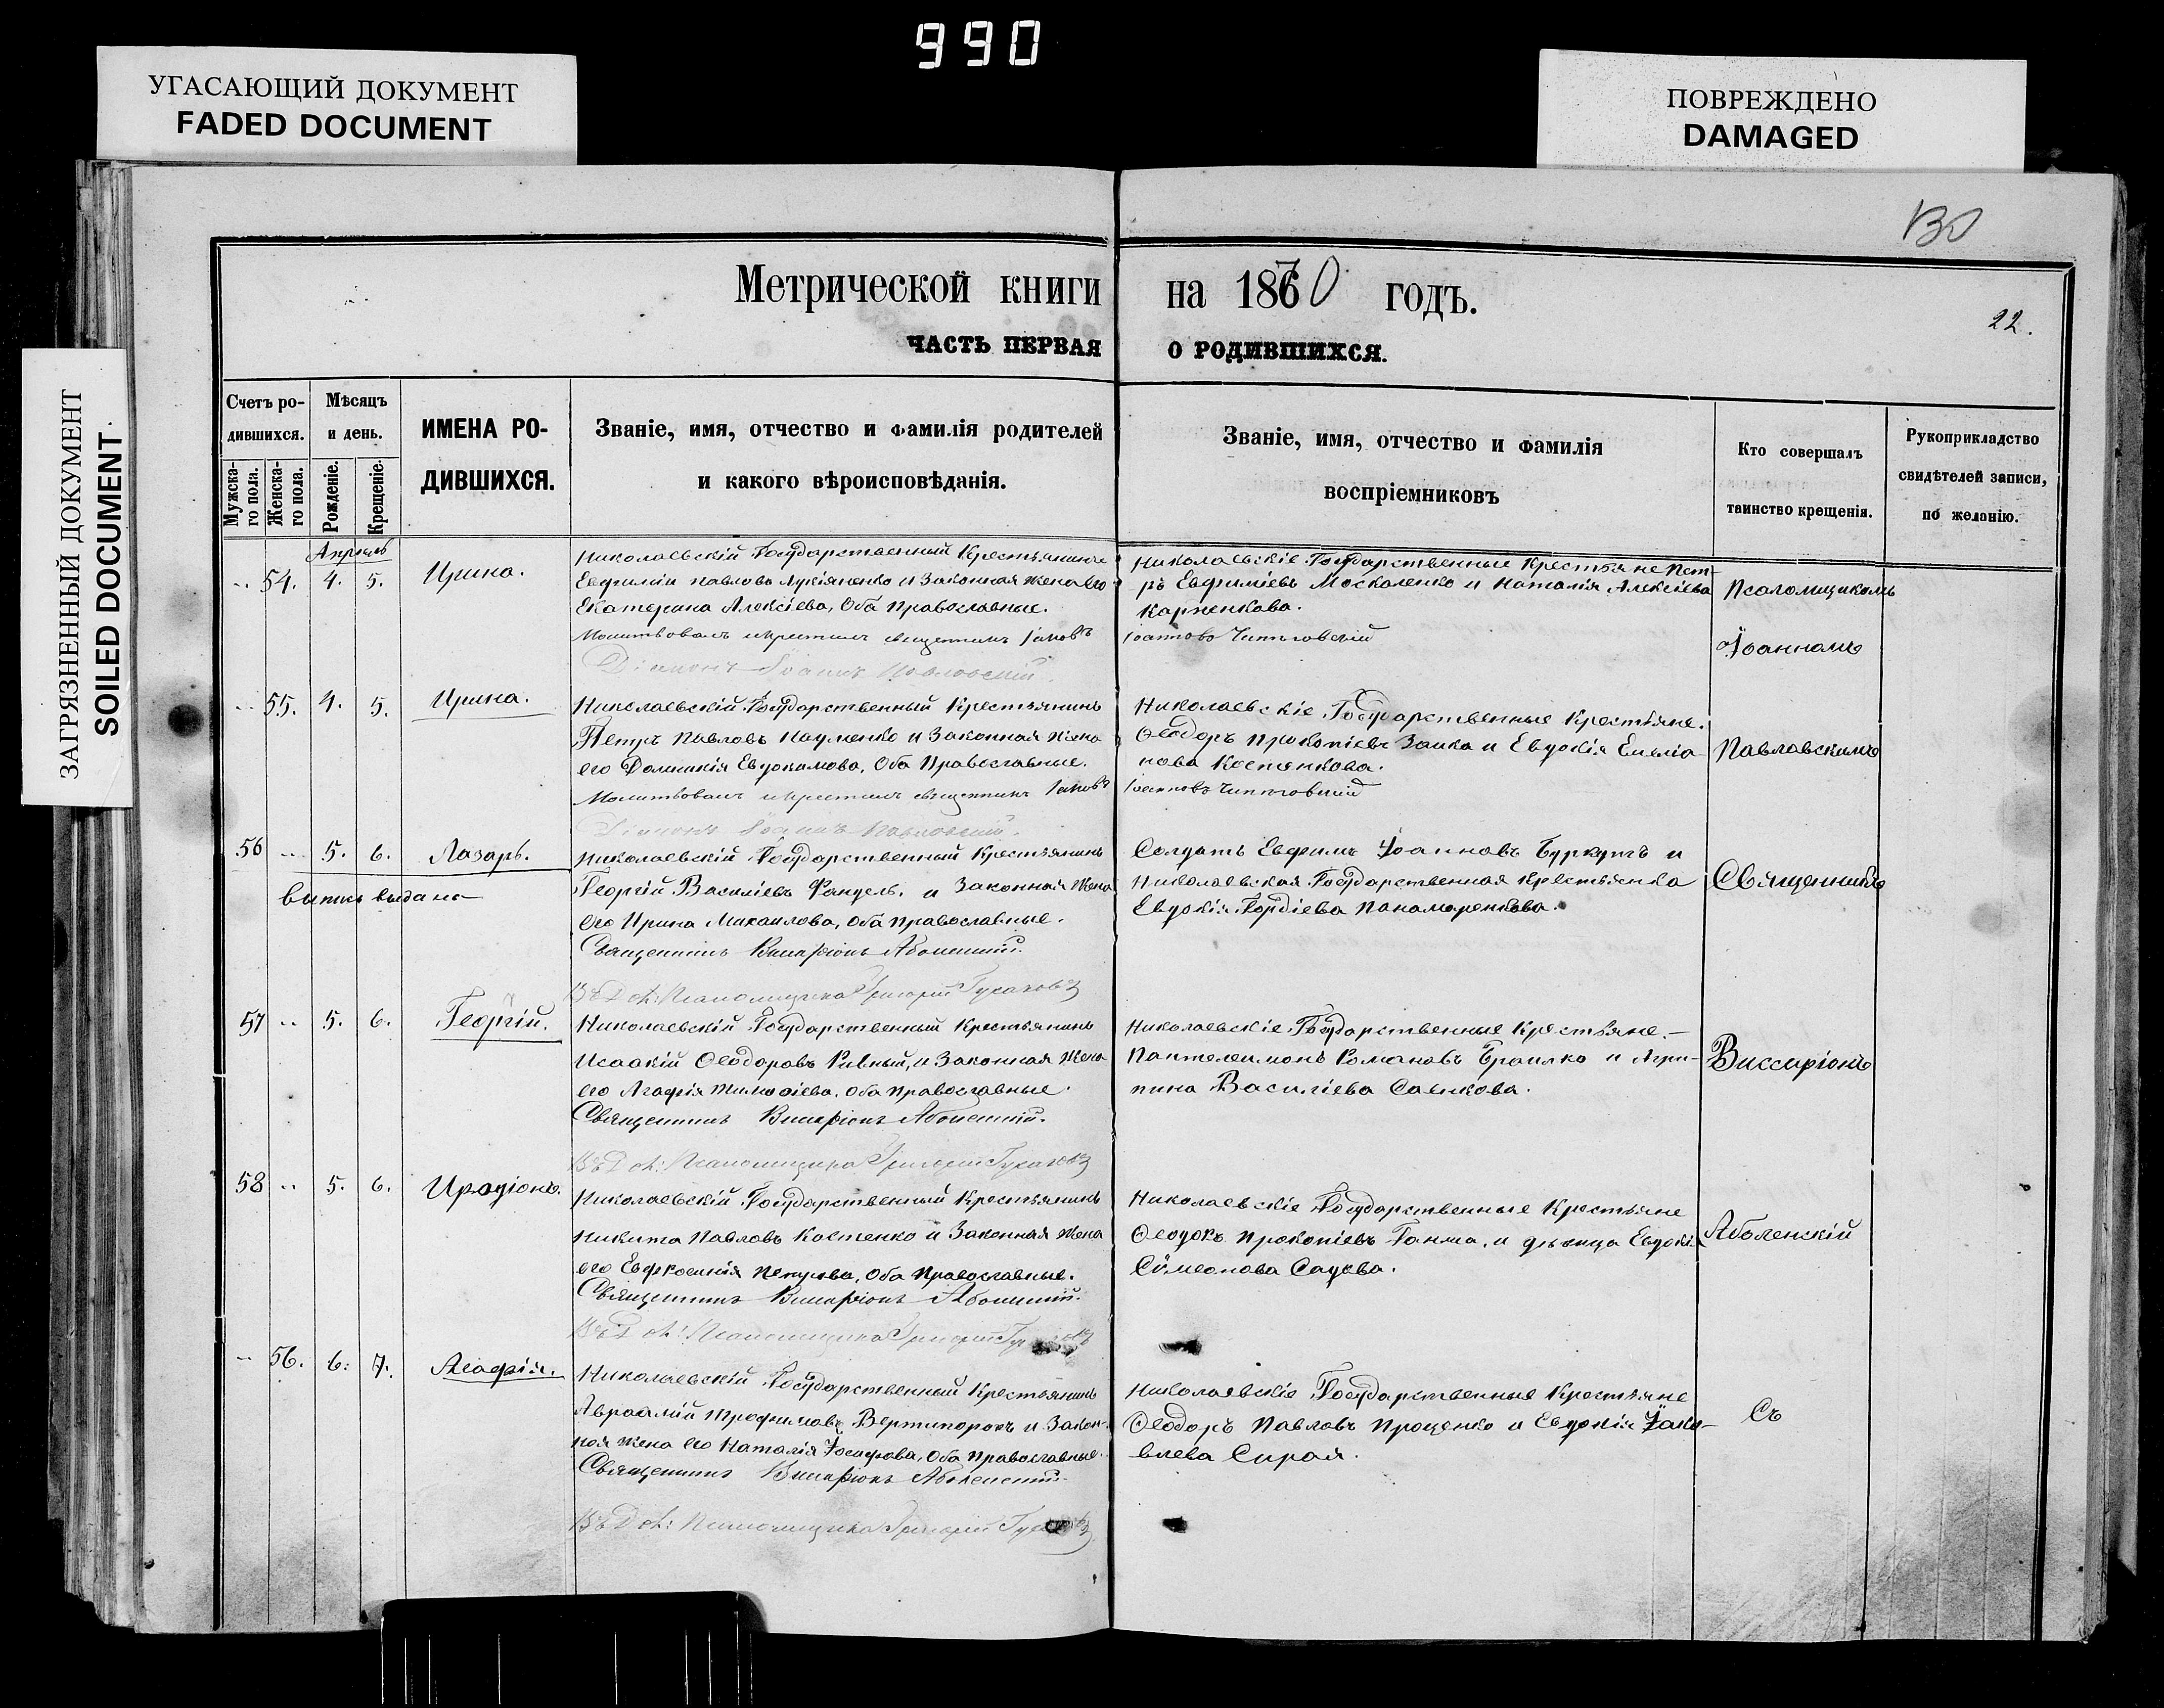 990
УГАСАЮЩИЙ ДОКУМЕНТ
FADED DOCUMENT
ПОВРЕЖДЕНО
DAMAGED
ЗАГРЯЗНЕННЫЙ ДОКУМЕНТ
SOILED DOCUMENT
130
Метрической книги на 1870 годъ.
22.
ЧАСТЬ ПЕРВАЯ О РОДИВШИХСЯ.
Счетъ ро-
дившихся.
Мужска-
го пола.
Женска-
го пола.
Мѣсяцъ
и день.
Рожденіе.
Крещеніе.
ИМЕНА РО-
ДИВШИХСЯ.
Званіе, имя, отчество и фамилія родителей
и какого вѣроисповѣданія.
Званіе, имя, отчество и фамилія
воспріемниковъ
Кто совершалъ
таинство крещенія.
Рукоприкладство
свидѣтелей записи,
по желанію.
Апрѣль
54. 4. 5. Ирина.
Николаевскій Государственный Крестьянинъ
Евфимій Павловъ Лукіяненко и Законная жена его
Екатерина Алексіева, Оба Православные.
Молитвовалъ и крестилъ священникъ Іаковъ
Діаконъ Іоаннъ Павловскій.
Николаевскіе Государственные Крестьяне Пет-
ръ Евфиміевъ Москаленко и Наталія Алексіева
Карпенкова.
Псаломщикомъ
Іоанномъ
55. 4. 5. Ирина.
Николаевскій Государственный Крестьянинъ
Петръ Павловъ Науменко и Законная Жена
его Домникія Евдокимова, Оба Православные.
Молитвовалъ и крестилъ священникъ Іаковъ
Діаконъ Іоаннъ Павловскій.
Николаевскіе Государственные Крестьяне.
Ѳеодоръ Прокопіевъ Заика и Евдокія Емелія-
нова Костенкова.
Павловскимъ
56 5. 6. Лазарь.
выпись выдана
Николаевскій Государственный Крестьянинъ
Георгій Василіевъ и Законная Жена
его Ирина Михаилова, Оба Православные.
Священникъ Виссаріонъ Аболенскій.
Солдатъ Евфимъ Іоанновъ и
Николаевская Государственная Крестьянка
Евдокія Гордіева Панамаренкова.
Священникъ
57 5. 6. Георгій.
Николаевскій Государственный Крестьянинъ
Исаакій Ѳеодоровъ Ривный, и Законная Жена
его Агафія Тимоѳіева, Оба Православные.
Священникъ Виссаріонъ Аболенскій.
Николаевскіе Государственные Крестьяне.
Пантелеимонъ Романовъ Браилко и Агри-
пина Василіева Савкова.
Виссаріонъ
58 5. 6. Иродіонъ.
Николаевскій Государственный Крестьянинъ
Никита Павловъ Костенко и Законная Жена
его Евфросинія Петрова, Оба Православные.
Священникъ Виссаріонъ Аболенскій.
Николаевскіе Государственные Крестьяне
Прокопіевъ Ганжа, и дѣвица Евдокія
Сѵмеонова Садова.
Аболенскій
56. 6. 7. Агафія.
Николаевскій Государственный Крестьянинъ
Авраамій Трофимовъ Вертипорохъ и Закон-
ная Жена его Наталія Іосифова, Оба Православные.
Священникъ Виссаріонъ Аболенскій.
Николаевскіе Государственные Крестьяне
Ѳеодоръ Павловъ Проценко и Евдокія Іако-
влева Сирая.
Съ